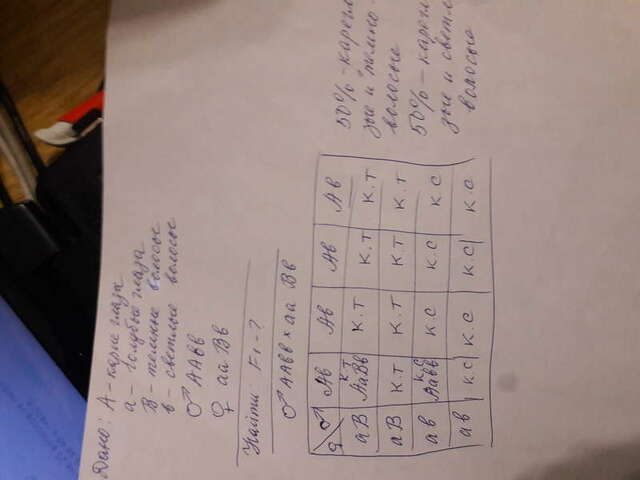 Дано: А - карие глаза
а - голубые глаза
В - темные волосы
в - светлые волосы
♂ ААвв
♀ аа Вв
Найти: F₁ - ?
♂ ААвв × аа Вв
♀ ♂ Ав Ав Ав Ав
аВ АаВв к.т к.т к.т к.т
аВ к.т к.т к.т к.т
ав Аавв к.с к.с к.с к.с
ав к.с к.с к.с к.с
50% - карегл
зые и темно-
волосые
50% - карегл
зые и светл
волосые